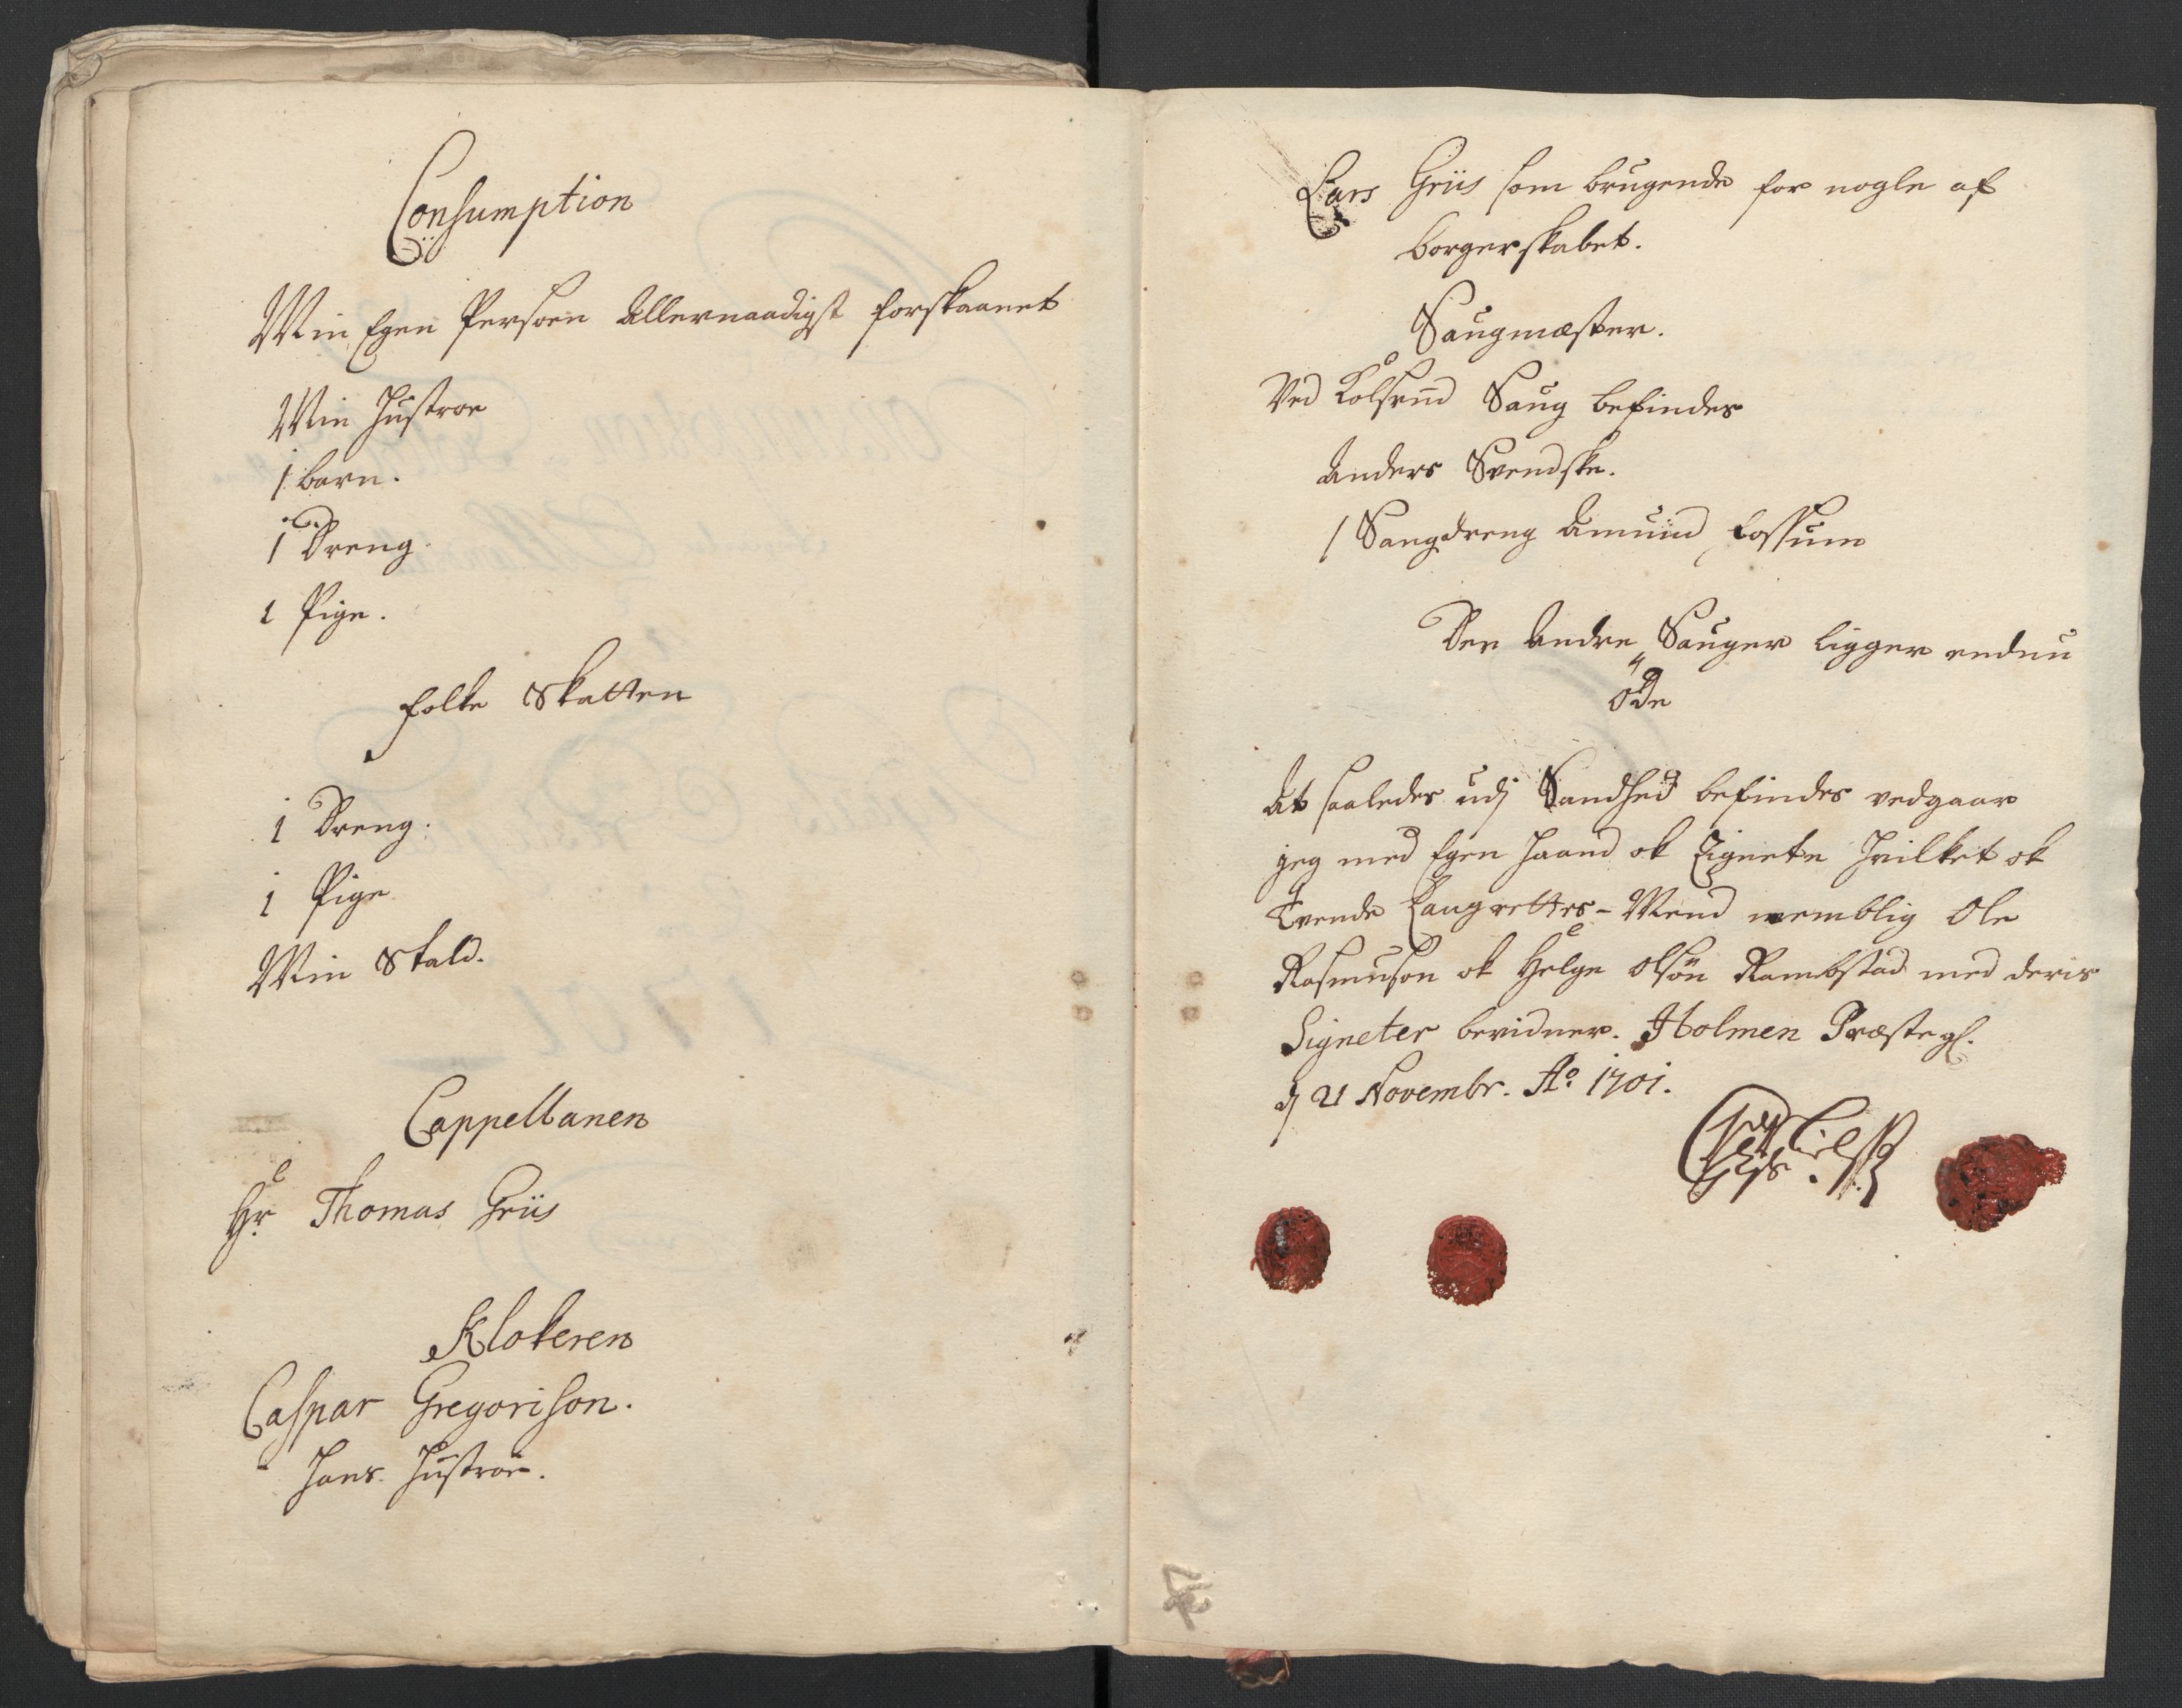 Consumption
Min Egen Persoen Allernaadigst forskaanet
Min Hustroe
1 barn.
1 Dreng.
1 Pige.
Folke Skatten
1 Dreng.
1 Pige
Min Stald.
Cappellanen
Hr. Thomas Griis
Klokeren
Caspar Gregorison.
Hans Hustroe.
Lars Griis som brugende for nogle af
borgerskabet.
Saugmæster.
Ved Saug befindes
Anders Svendske.
1 Saugdreng Amund Fossum
Den Andre Sauger ligger endnu
øde
At saaledes udj Sandhed befindes vedgaar
jeg med Egen Haand ok Zignete hvilket ok
Tvende Laugrettes-Mend nemblig Ole
Rasmuson ok Helge Olsøn Rambstad med deris
Signeter bevidner. Holmen Præstegl.
dj 21 Novembr. Ao. 1701.